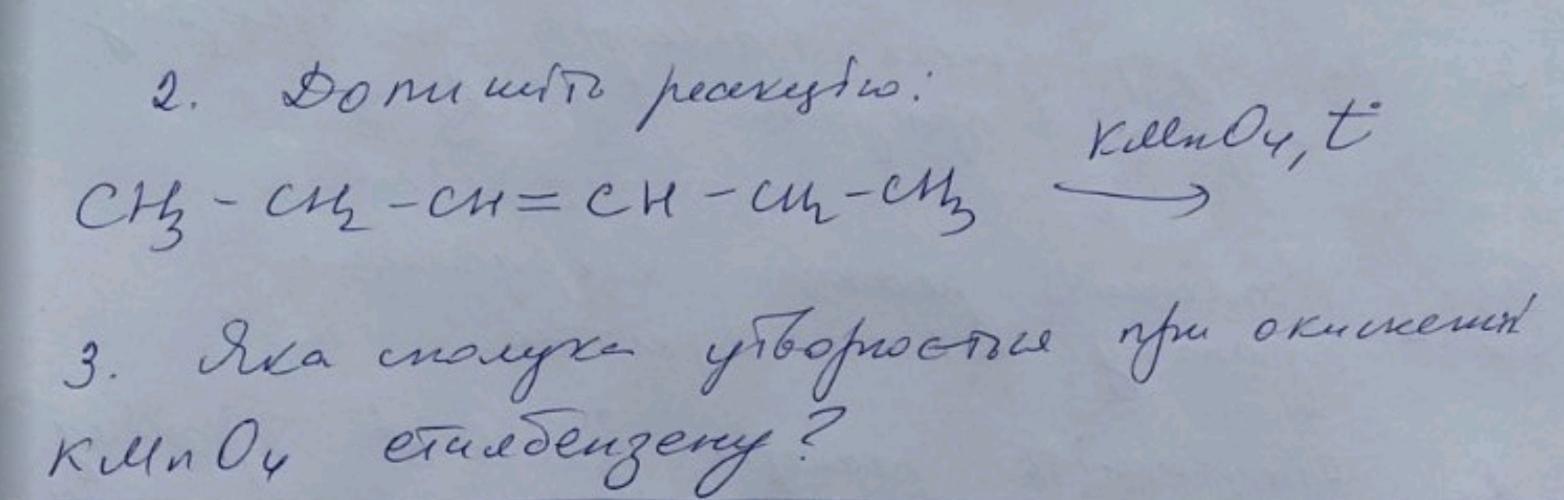 2. Допишіть реакцію:
KMnO₄, t°
CH₃ - CH₂ - CH = CH - CH₂ - CH₃ ⟶
3. Яка сполука утворюється при окисненні
KMnO₄ етилбензену?